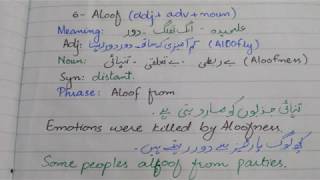 6- Aloof (adj + adv + noun)
Meaning: علیحدہ - الگ تھلگ - دور
Adj: کم آمیزی کے ساتھ دور دور رہنا (Aloofly)
Noun: بے ربطی - بے تعلقی - تنہائی (Aloofness)
Syn: distant.
Phrase: Aloof from
تنہائی جذبوں کو مار دیتی ہے۔
Emotions were killed by Aloofness
کچھ لوگ پارٹیز سے دور رہتے ہیں۔
Some peoples alfoof from parties.